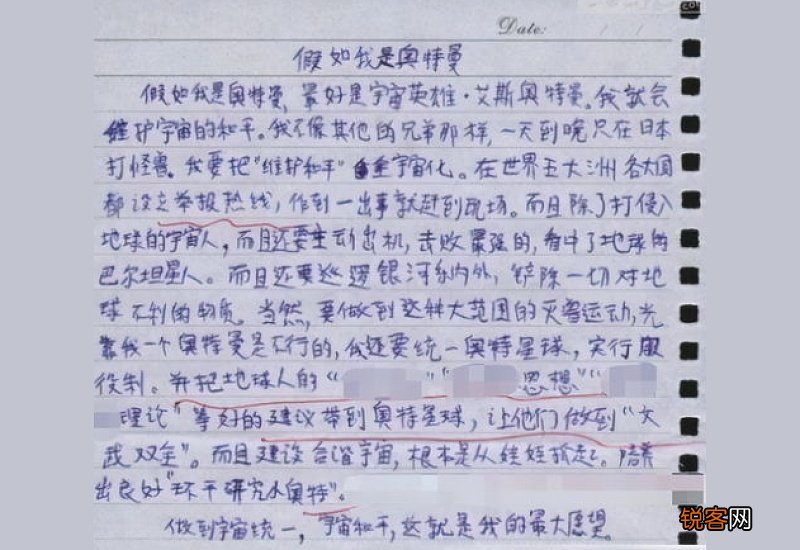 Date:
假如我是奥特曼
假如我是奥特曼,最好是宇宙英雄·艾斯奥特曼。我就会
维护宇宙的和平。我不像其他的兄弟那样,一天到晚只在日本
打怪兽。我要把“维护和平”宇宙化。在世界五大洲各大国
都设立举报热线,作到一出事就赶到现场。而且除了打侵入
地球的宇宙人,而且还要主动出机,击败最强的,看中了地球的
巴尔坦星人。而且还要巡逻银河系内外,铲除一切对地
球不利的物质。当然,要做到这种大范围的灭害运动,光
靠我一个奥特曼是不行的,我还要统一奥特星球,实行服
役制。并把地球人的“ ”“ 思想”“
理论”等好的建议带到奥特星球,让他们做到“文
武双全”。而且建设合谐宇宙,根本是从娃娃抓起。培养
出良好“环干研究小奥特”。
做到宇宙统一,宇宙和平,这就是我的最大愿望。
锐客网